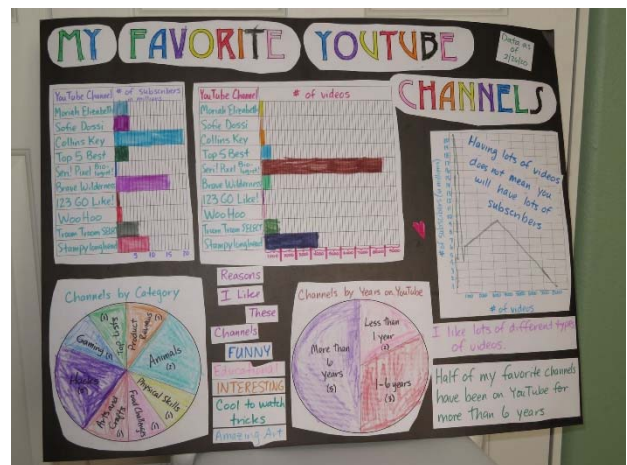 MY FAVORITE YOUTUBE
CHANNELS
Data as
of
YouTube Channel
# of Subscribers
in millions
Moriah Elizabeth
Sofie Dossi
Collins Key
Top 5 Best
Brave Wilderness
123 GO Like!
Woo Hoo
Troom Troom SELECT
Stampylonghead
5 10 15 20
YouTube Channel
# of videos
Moriah Elizabeth
Sofie Dossi
Collins Key
Top 5 Best
Brave Wilderness
123 GO Like!
Woo Hoo
Troom Troom SELECT
Stampylonghead
Having lots of videos
does not mean you
will have lots of
subscribers
# of Subscribers (in millions)
# of videos
Channels by Category
Top Lists
(1)
Product
Reviews
(1)
Animals
(2)
Physical Skills
(1)
Food Challenges
(1)
Arts and
Crafts
(1)
Hacks
Gaming
Reasons
I Like
These
Channels
FUNNY
Educational
INTERESTING
Cool to watch
tricks
Amazing Art
Channels by Years on YouTube
More than
6
Years
(5)
Less than
1 year
1-6 years
I like lots of different types
of videos.
Half of my favorite channels
have been on YouTube for
more than 6 years